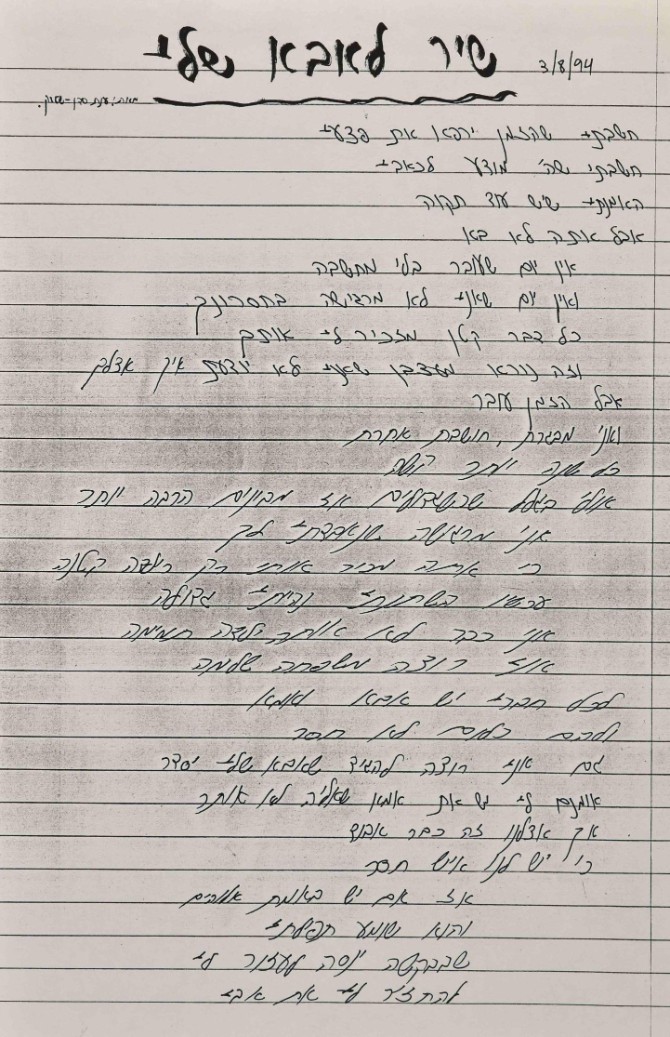 שיר לאבא שלי
3/8/94
מאת: ענת
חשבתי שהזמן ירפא את פצעי
חשבתי שה' מודע לכאבי
האמנתי שיש עוד תקוה
אבל אתה לא בא
אין יום שעובר בלי מחשבה
ואין יום שאני לא מרגישה בחסרונך
כל דבר קטן מזכיר לי אותך
וזה נורא מעצבן שאני לא יודעת איך אצלך
אבל הזמן עובר
ואני מבגרת, חושבת אחרת
כל שנה יותר קשה
אולי בגלל שכשגדלים אז מבינים הרבה יותר
אני מרגישה שנאבדתי לך
כי אתה מכיר אותי רק ילדה קטנה
עכשיו השתנתי נהייתי גדולה
אני כבר לא אותה ילדה תמימה
אני רוצה משפחה שלמה
לכל חברי יש אבא ואמא
ולהם כלום לא חסר
גם אני רוצה להגיד שאבא שלי יסדר
אומנם לי יש את אמא שאליה לא אותר
אך אצלנו זה כבר אבוד
כי יש לנו איש חסר
אז אם יש באמת אלוהים
והוא שומע תפילתי
שבבקשה ינסה לעזור לי
להחזיר לי את אבי